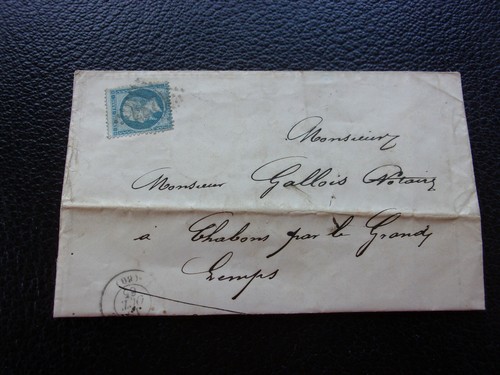 Monsieur
Monsieur Gallois Notaire
à Chabons par le Grand
Lemps